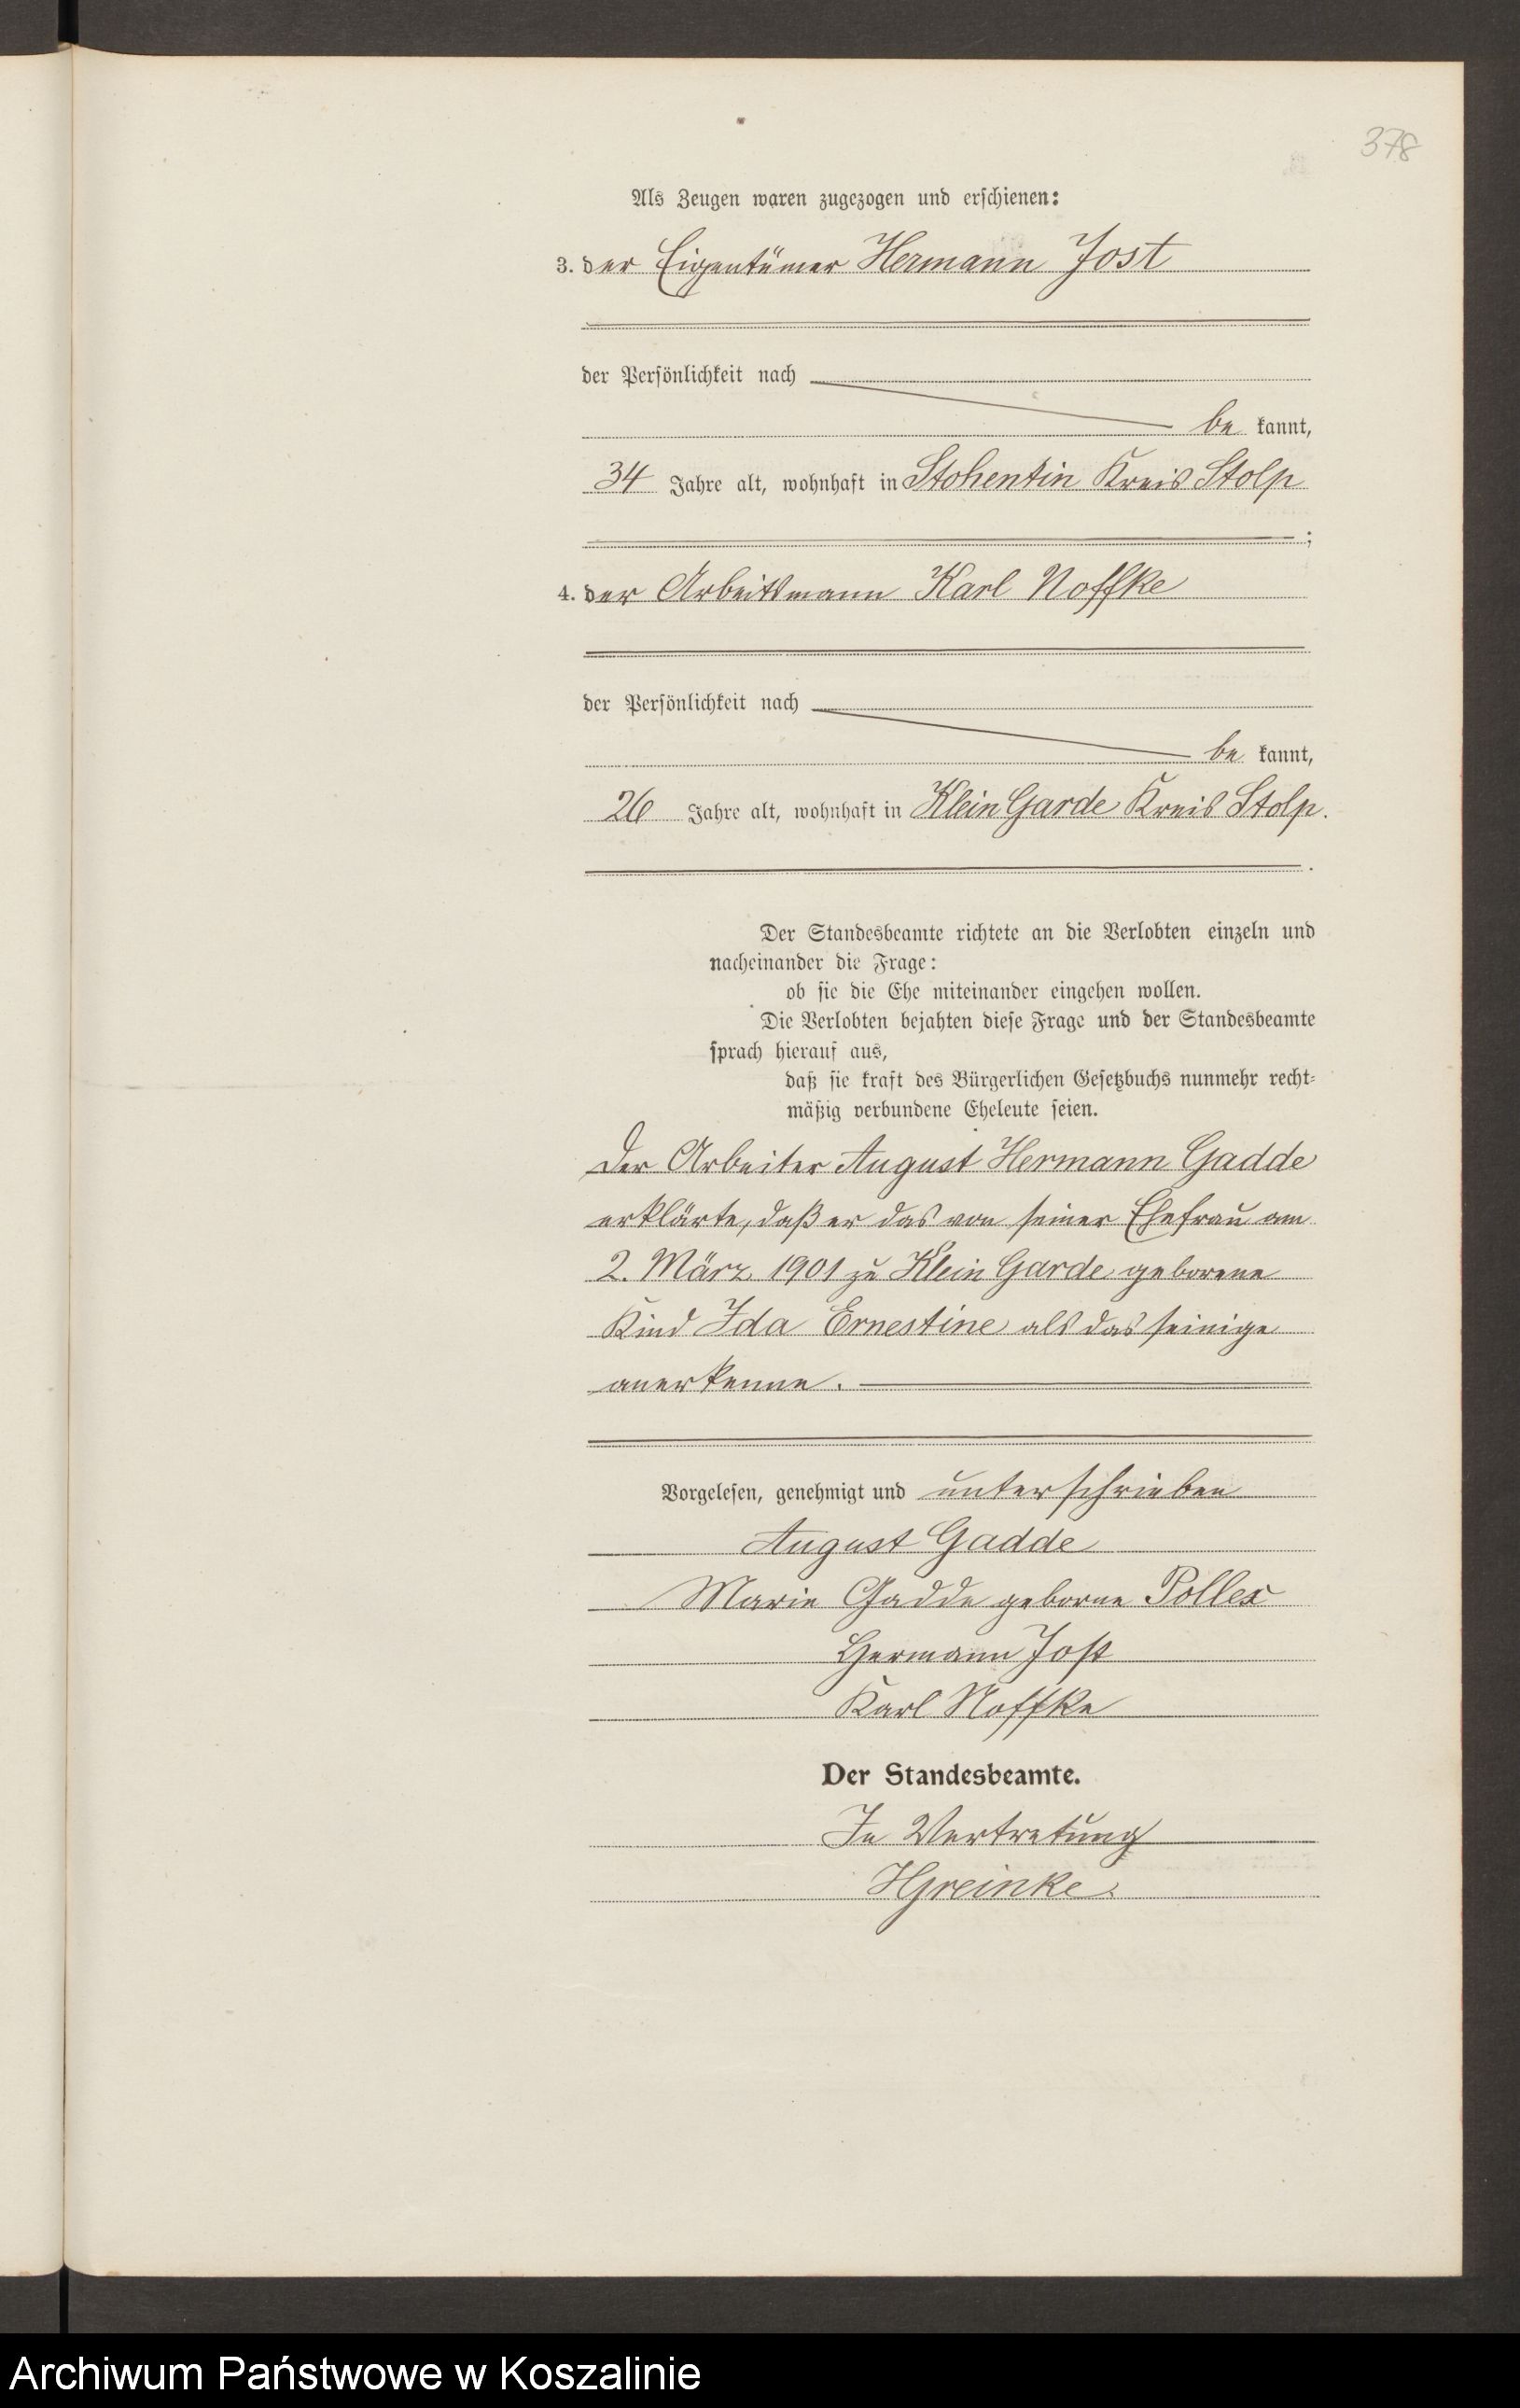 378
Als Zeugen waren zugezogen und erschienen:
3. der Eigentümer Hermann Jost
der Persönlichkeit nach
be kannt,
34 Jahre alt, wohnhaft in Stohentin Kreis Stolp
;
4. der Arbeitsmann Karl Noffke
der Persönlichkeit nach
be kannt,
26 Jahre alt, wohnhaft in Klein Garde Kreis Stolp.
.
Der Standesbeamte richtete an die Verlobten einzeln und
nacheinander die Frage:
ob sie die Ehe miteinander eingehen wollen.
Die Verlobten bejahten diese Frage und der Standesbeamte
sprach hierauf aus,
daß sie kraft des Bürgerlichen Gesetzbuchs nunmehr recht-
mäßig verbundene Eheleute seien.
Der Arbeiter August Hermann Gadde
erklärte, daß er das von seiner Ehefrau am
2. März 1901 zu Klein Garde geborene
Kind Ida Ernestine als das seinige
anerkenne.
Vorgelesen, genehmigt und unterschrieben
August Gadde
Marie Gadde geborne Pollex
Hermann Jost
Karl Noffke
Der Standesbeamte.
In Vertretung
HGreinke.
Archiwum Państwowe w Koszalinie